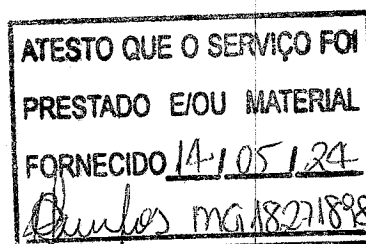 ATESTO QUE O SERVIÇO FOI
PRESTADO E/OU MATERIAL
FORNECIDO 14/05/24
MG18271898